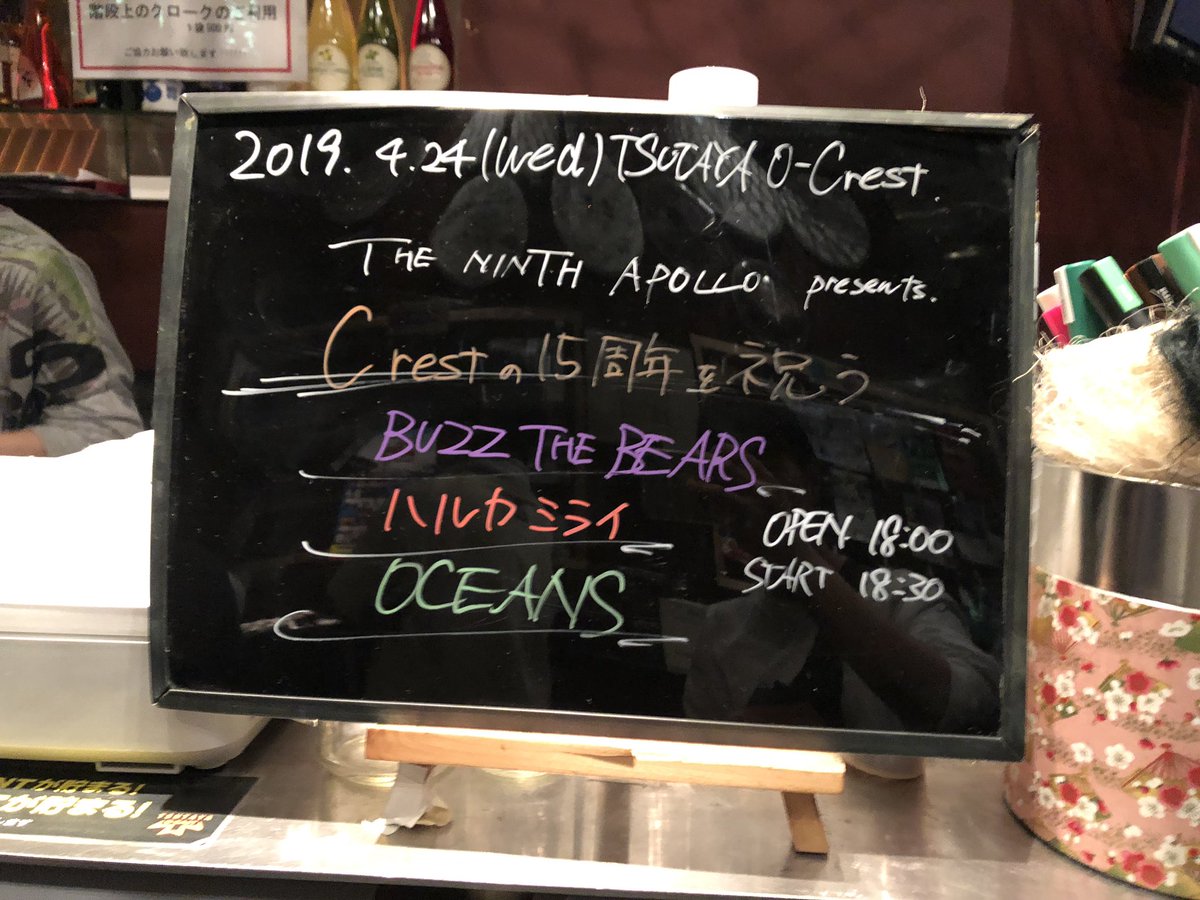 階段上のクロークのご利用
1袋500円
ご協力お願い致します
2019. 4.24(Wed) TSUTAYA O-Crest.
THE NINTH APOLLO presents.
Crestの15周年を祝う
BUZZ THE BEARS
ハルカミライ
OCEANS
OPEN 18:00
START 18:30